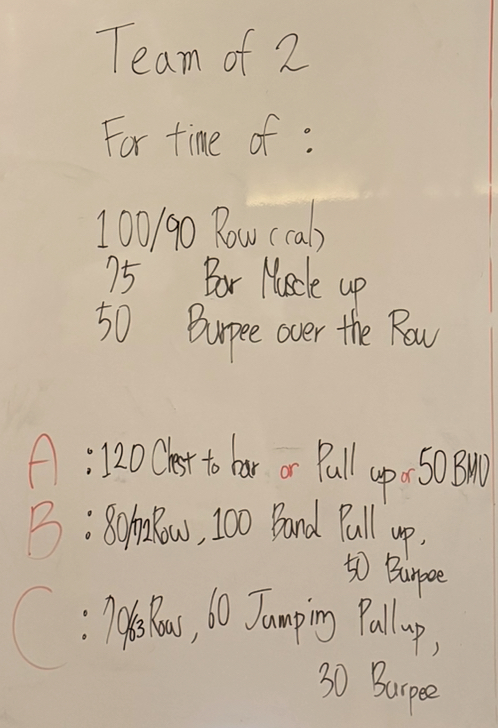 Team of 2
For time of :
100/90 Row (cal)
75 Bar Muscle up
50 Burpee over the Row
A : 120 Chest to bar or Pull up or 50 BMU
B : 80/72 Row, 100 Band Pull up,
50 Burpee
C : 70/63 Row, 60 Jumping Pull up,
30 Burpee